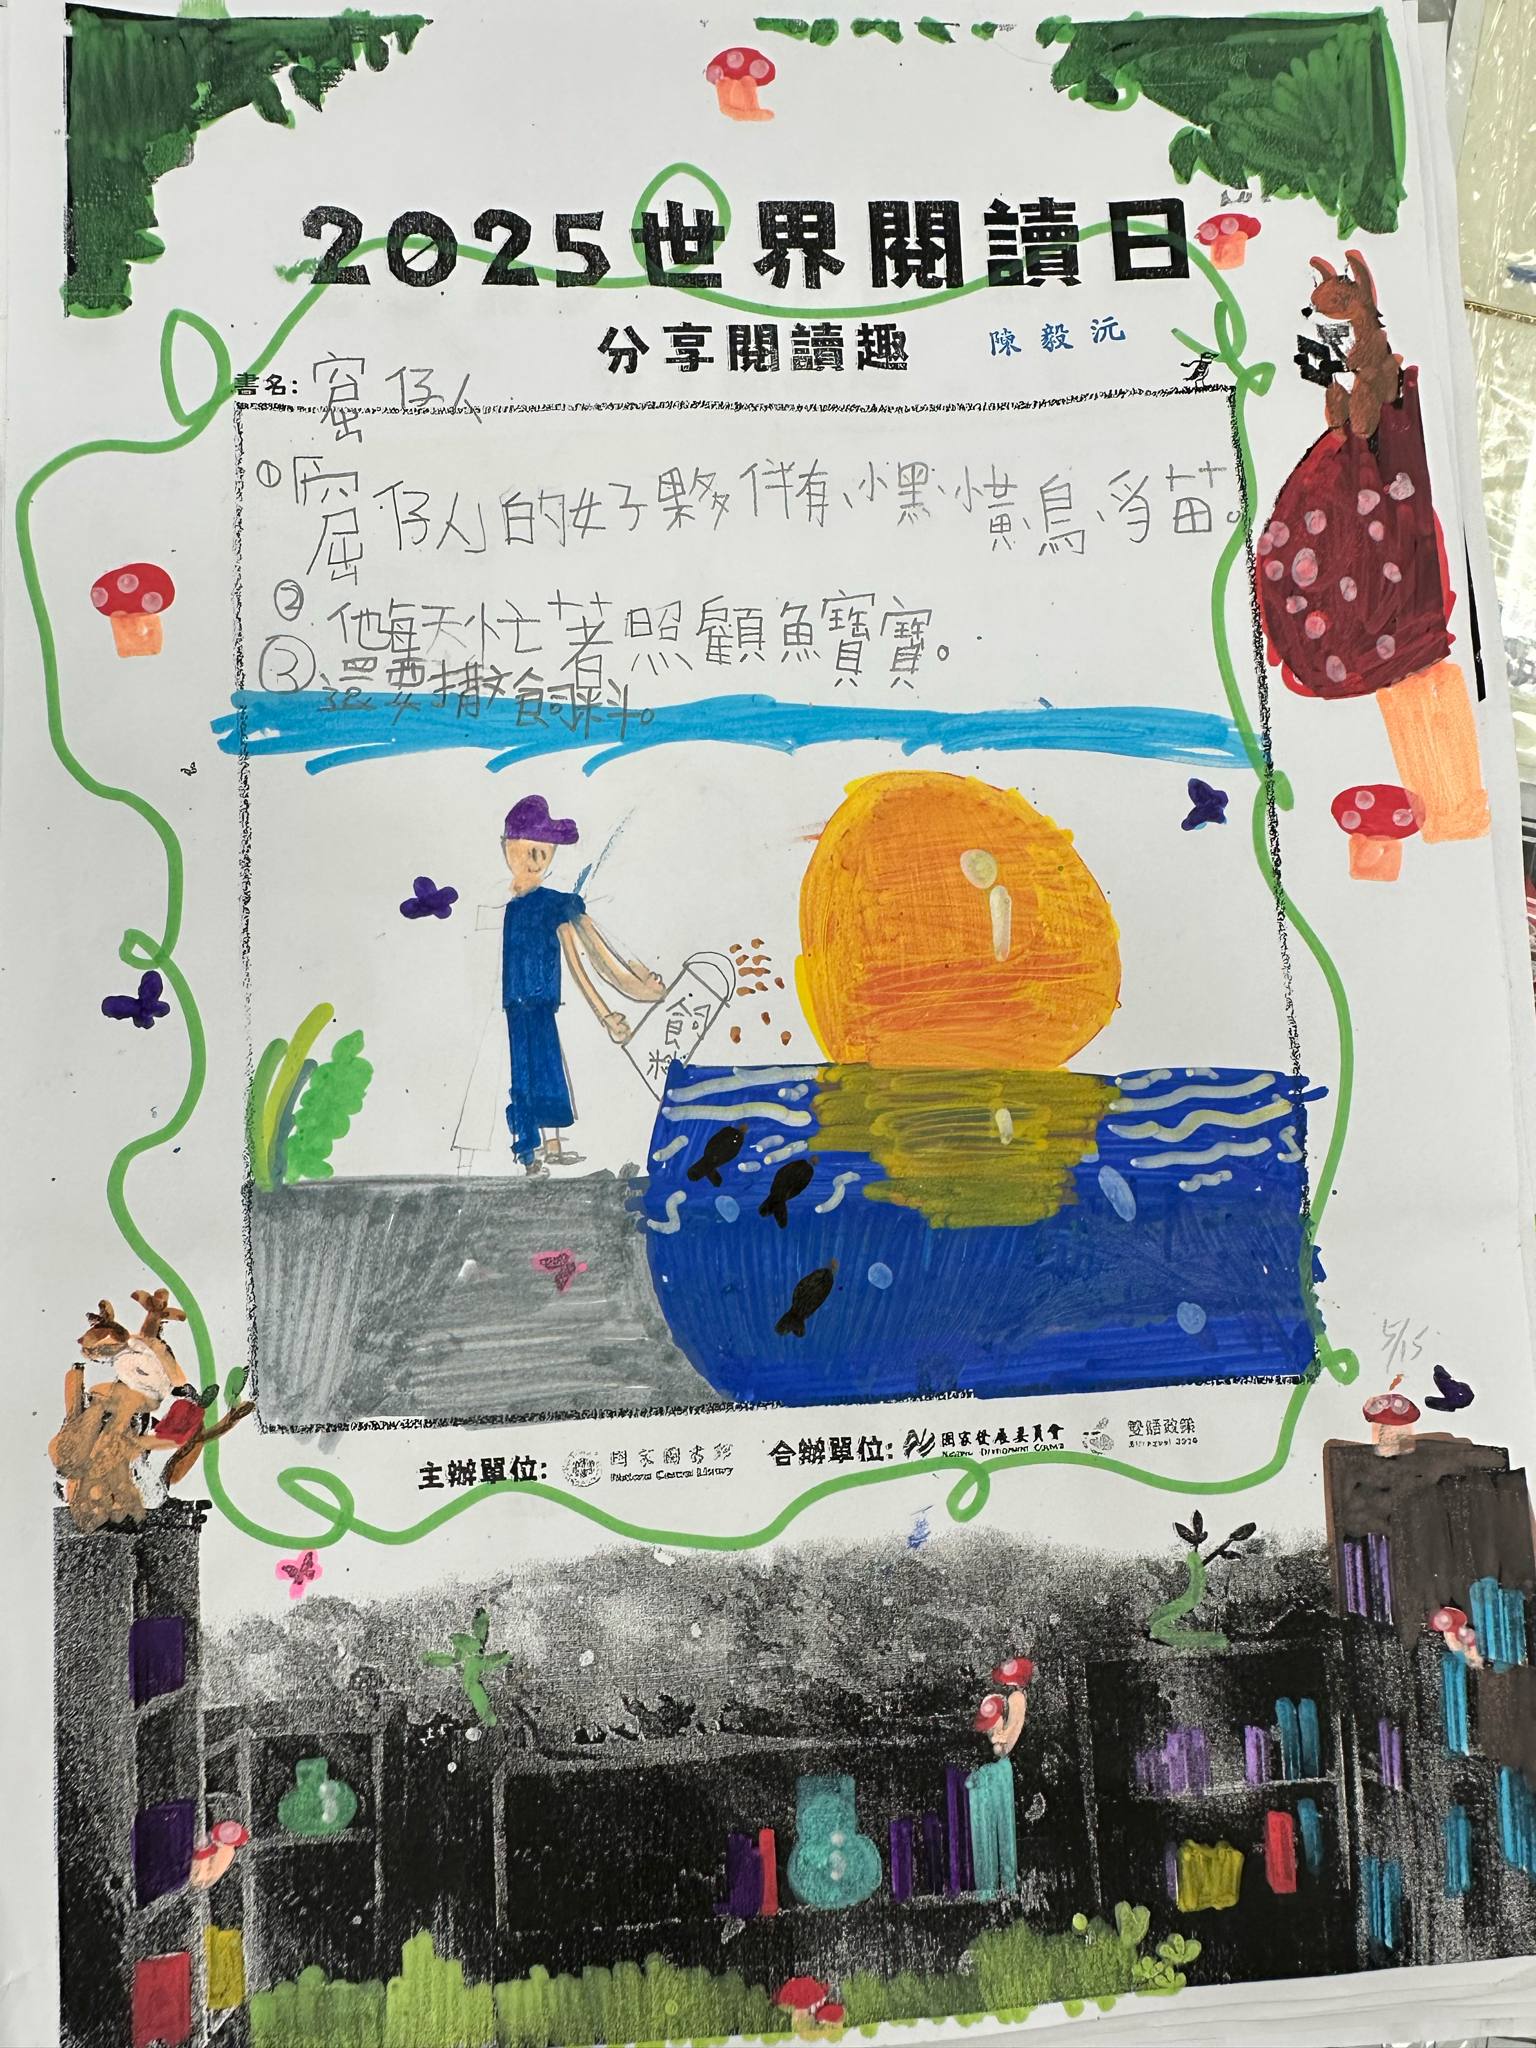 2025世界閱讀日
分享閱讀趣 陳毅沅
書名: 窟仔人
①窟仔人的好夥伴有、小黑、小黃鳥、貓。
②他每天忙著照顧魚寶寶。
③還要撒飼料。
飼料
5/15
主辦單位: 國家圖書館 National Central Library 合辦單位: 國家發展委員會 雙語政策